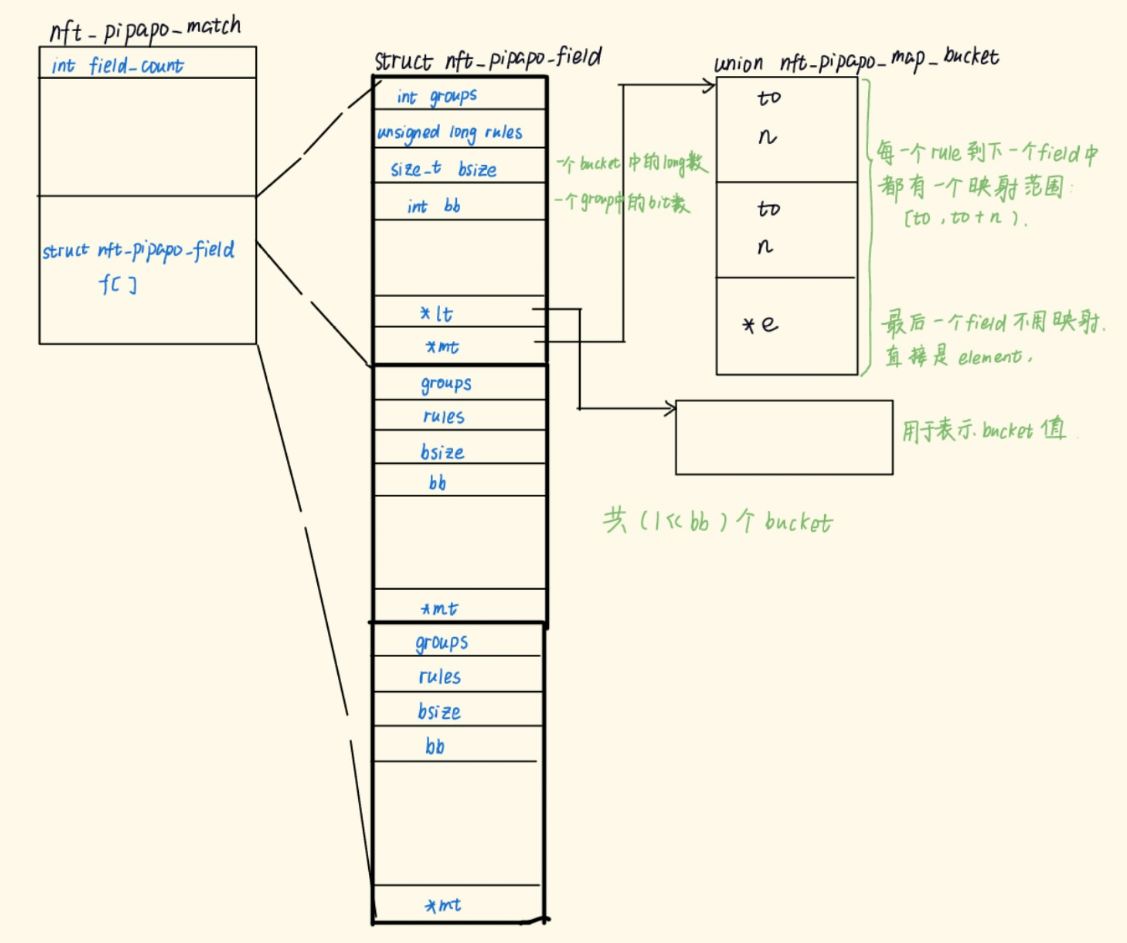 nft_pipapo_match
int field_count
struct nft_pipapo_field
f[ ]
struct nft_pipapo_field
int groups
unsigned long rules
size_t bsize
int bb
*lt
*mt
groups
rules
bsize
bb
*mt
groups
rules
bsize
bb
*mt
一个bucket中的long数
一个group中的bit数
union nft_pipapo_map_bucket
to
n
to
n
*e
每一个rule到下一个field中
都有一个映射范围:
[to, to+n).
最后一个field不用映射.
直接是element.
用于表示bucket值
共(1<<bb)个bucket